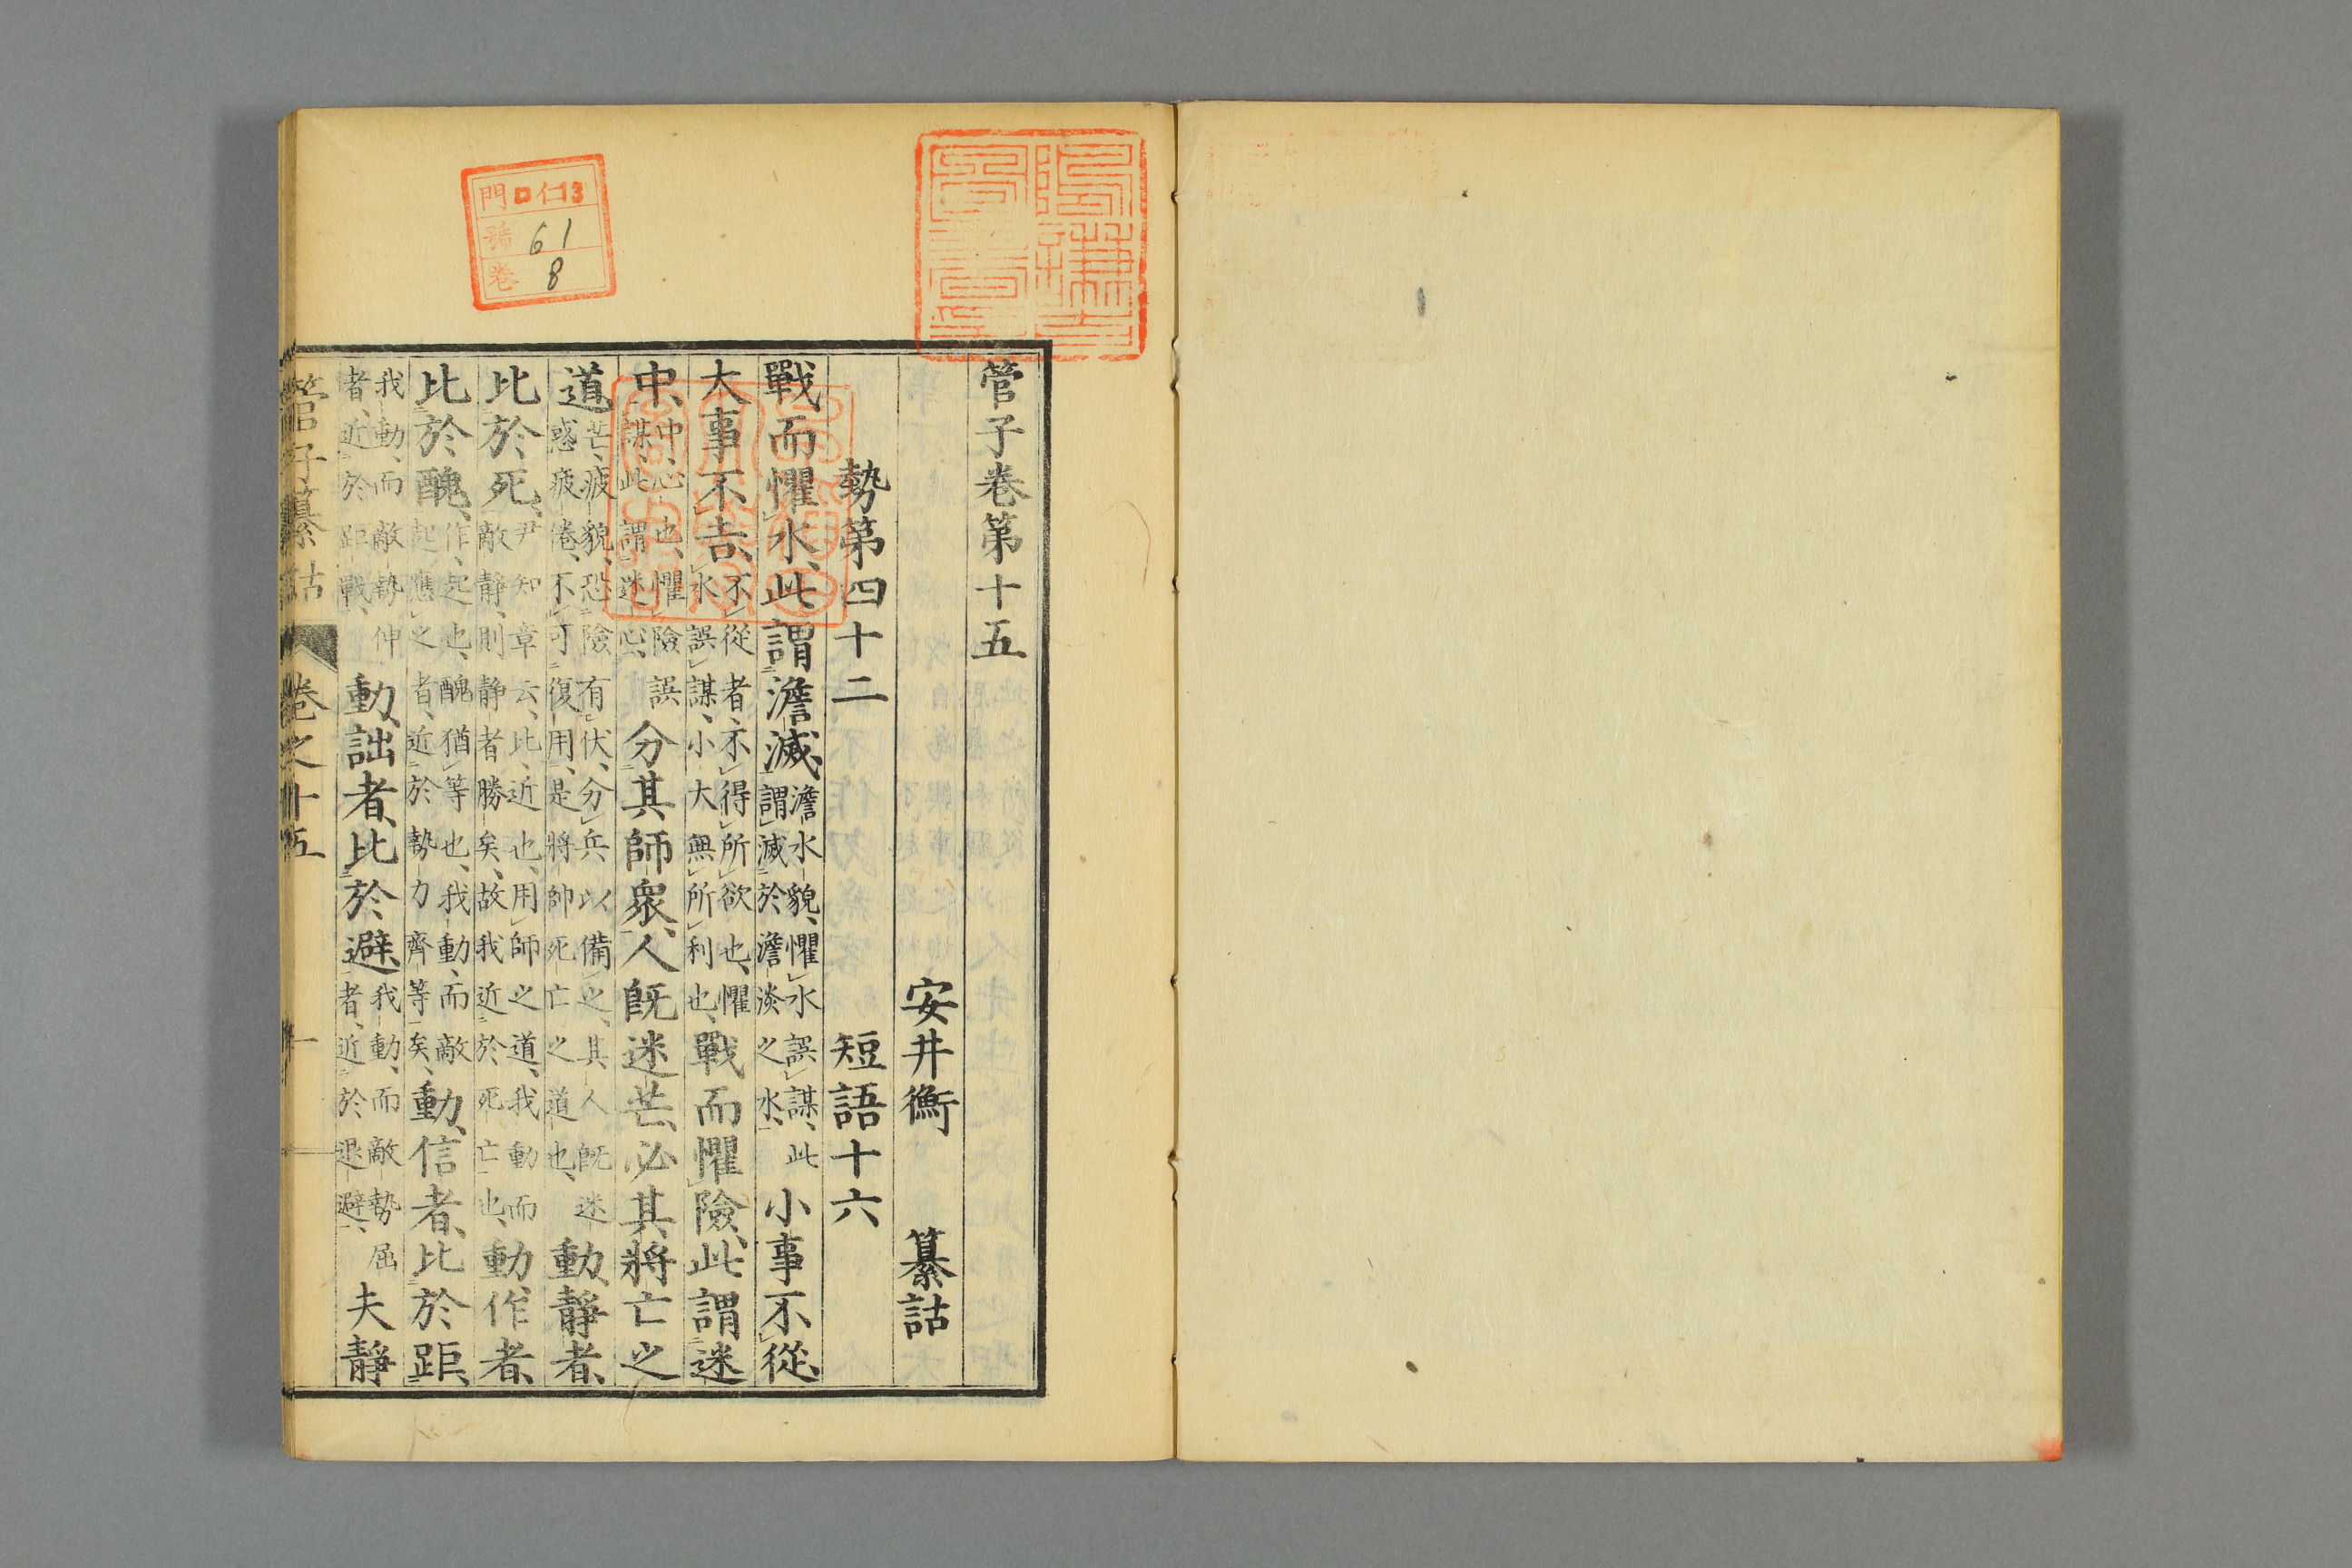 管子卷第十五
安井衡 纂詁
勢第四十二 短語十六
戰而懼水、此謂澹滅、澹水貌、懼水誤謀、此謂滅於澹淡之水、小事不從、
大事不吉、不從者、不得所欲也、懼水誤謀、小大無所利也、戰而懼險、此謂迷
中、中、心也、懼險誤謀、此謂迷心、分其師衆、人旣迷芒、必其將亡之
道、芒、疲貌、恐險有伏、分兵以備之、其人旣迷惑疲倦、不可復用、是將帥死亡之道也、動靜者、
比於死、尹知章云、比、近也、用師之道、我動而敵靜、則靜者勝矣、故我近於死亡也、動作者、
比於醜、作、起也、醜猶等也、我動、而敵起應之者、近於勢力齊等矣、動信者、比於距、
我動、而敵勢伸者、近於距戰、動詘者、比於避、我動、而敵勢屈者、近於退避、夫靜
管子纂詁 卷之十五 一
門 ロ仁13
號 61
卷 8